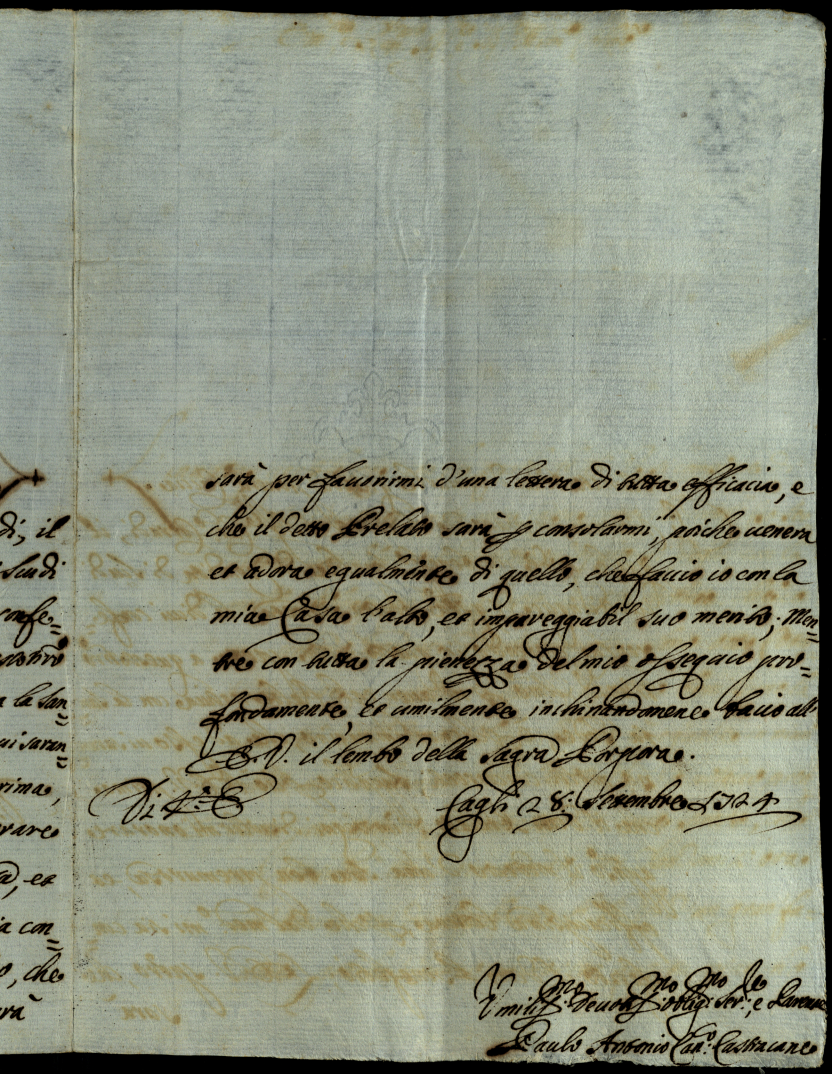 di, il
scudi
confe=
la san=
saran=
rima,
rare
a, et
a con=
o, che
rà
sarà per fauorirmi d'una lettera di tutta efficacia, e
che il detto Prelato sarà p consolarmi, poiche uenera
et adora egualmente di quello, che faccio io con la
mia Casa l'alto, et impareggiabil suo merito; Men=
tre con tutta la pienezza del mio ossequio pro=
fondamente, et umilmente inchinandomene bacio all'
E.V. il lembo della sagra Porpora.
Di V.ra E
Cagli 28: Settembre 1724
Vmiliss.mo Deuotiss.mo Obblig.mo Ser.re, e Parente
Paulo Antonio Can.co Castracane